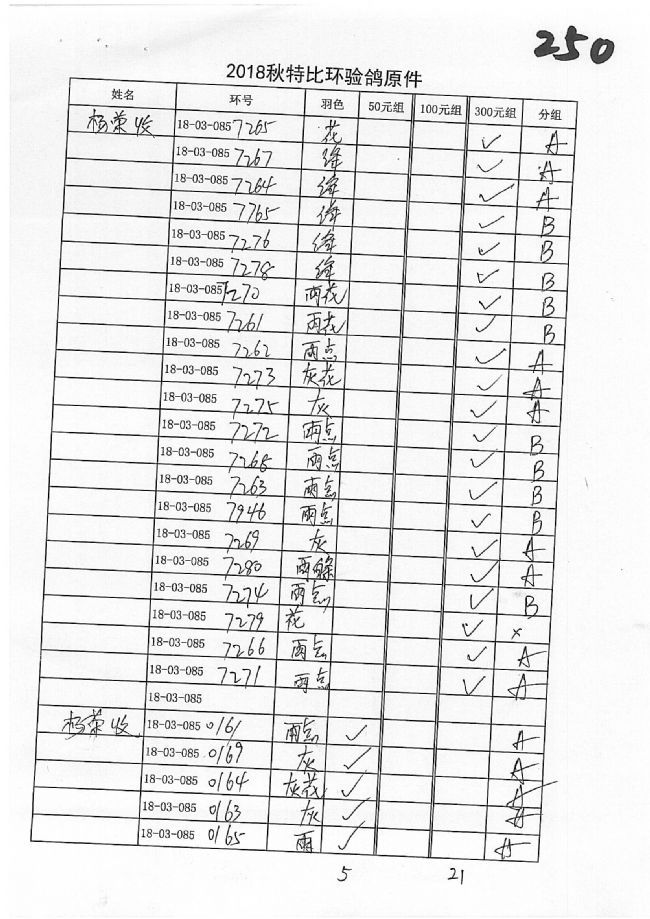 250
2018秋特比环验鸽原件
姓名 环号 羽色 50元组 100元组 300元组 分组
杨荣收 18-03-085 7265 花 ✓ A
18-03-085 7267 绛 ✓ A
18-03-085 7264 绛 ✓ A
18-03-085 7765 绛 ✓ B
18-03-085 7276 绛 ✓ B
18-03-085 7278 绛 ✓ B
18-03-085 7270 雨花 ✓ B
18-03-085 7261 雨花 ✓ B
18-03-085 7262 雨点 ✓ A
18-03-085 7273 灰花 ✓ A
18-03-085 7275 灰 ✓ A
18-03-085 7272 雨点 ✓ B
18-03-085 7268 雨点 ✓ B
18-03-085 7263 雨点 ✓ B
18-03-085 7946 雨点 ✓ B
18-03-085 7269 灰 ✓ A
18-03-085 7280 雨 ✓ A
18-03-085 7274 雨点 ✓ B
18-03-085 7279 花 ✓ ×
18-03-085 7266 雨点 ✓ A
18-03-085 7271 雨点 ✓ A
18-03-085
杨荣收 18-03-085 0161 雨点 ✓ A
18-03-085 0169 灰 ✓ A
18-03-085 0164 灰花 ✓ A
18-03-085 0163 灰 ✓ A
18-03-085 0165 雨 ✓ A
5 21